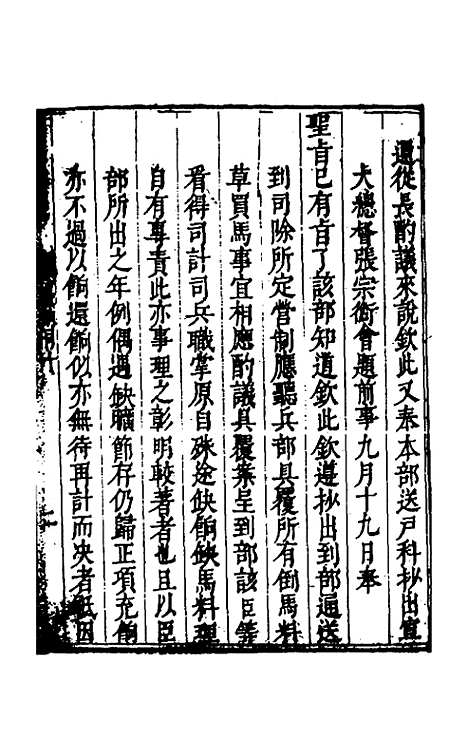 還從長酌議來說欽此又奉本部送戶科抄出宣
大總督張宗衡會題前事九月十九日奉
聖旨已有旨了該部知道欽此欽遵抄出到部通送
到司除所定營制應聽兵部具覆所有倒馬料
草買馬事宜相應酌議具覆案呈到部該臣等
看得司計司兵職掌原自殊途缺餉缺馬料理
自有專責此亦事理之彰明較著者也且以臣
部所出之年例偶遇缺曠節存仍歸正項充餉
亦不過以餉還餉似亦無待再計而決者祗因